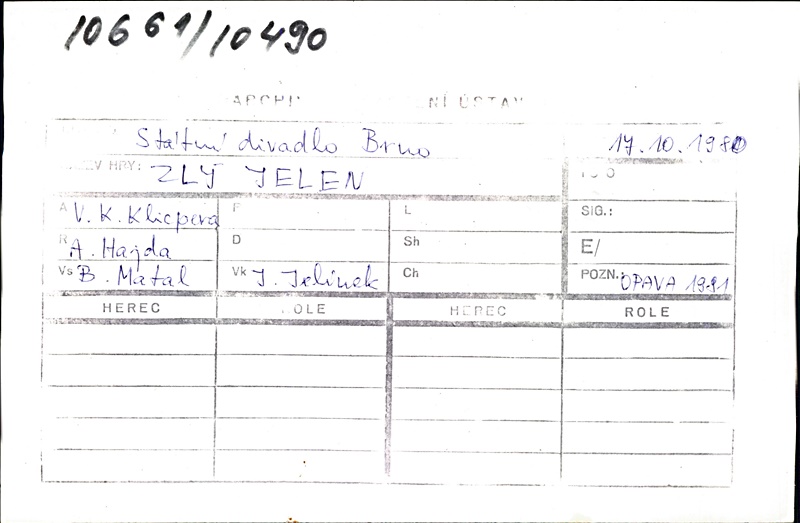 10661/10490
Státní divadlo Brno 17.10.1980
HRY: ZLÝ JELEN
A V. K. Klicpera F L SIG.:
R A. Hajda D Sh E/
Vs B. Matal Vk J. Jelínek Ch POZN.: OPAVA 1981
HEREC OLE HEREC ROLE